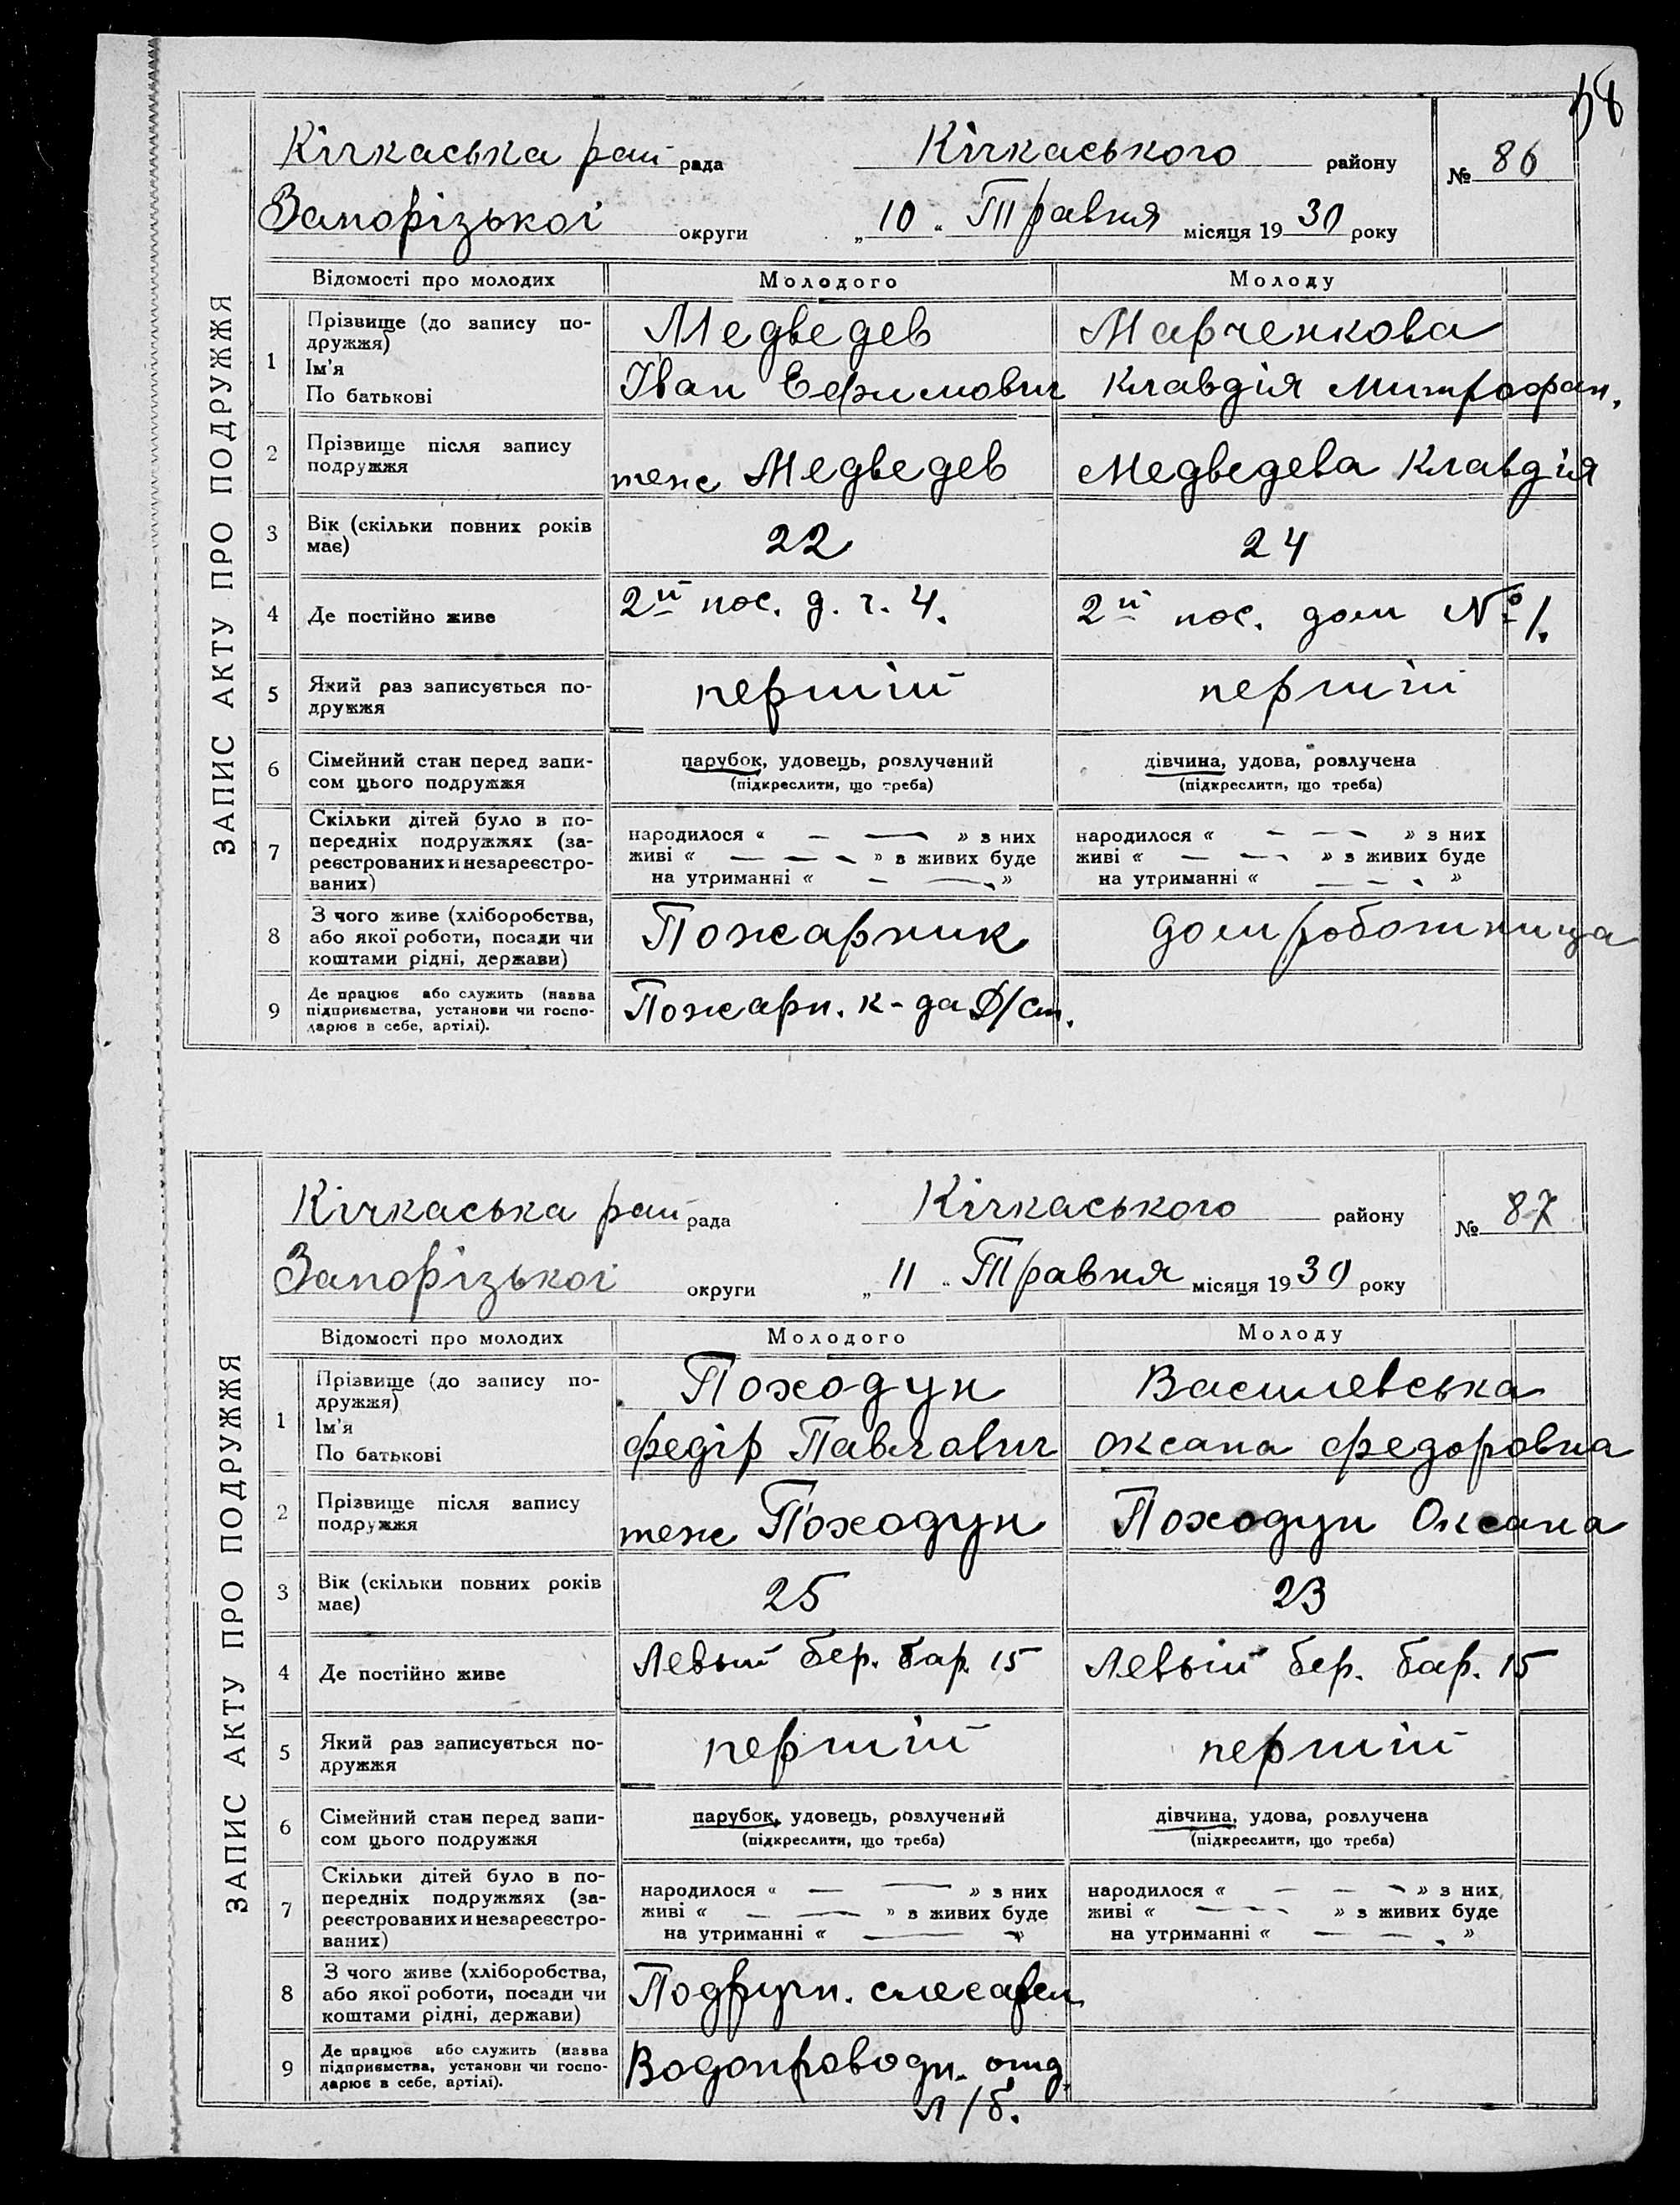 58
ЗАПИС АКТУ ПРО ПОДРУЖЖЯ
Кічкаська рай рада Кічкаського району № 86
Запорізької округи „10" Травня місяця 1930 року
Відомості про молодих Молодого Молоду
1 Прізвище (до запису по-
дружжя) Медведев Марченкова
Ім'я
По батькові Іван Ефимович Клавдія Митрофан.
2 Прізвище після запису
подружжя теж Медведев Медведева Клавдія
3 Вік (скільки повних років
має) 22 24
4 Де постійно живе 2й пос. д. ч. 4. 2й пос. дом № 1.
5 Який раз записується по-
дружжя перший перший
6 Сімейний стан перед запи-
сом цього подружжя
парубок, удовець, розлучений дівчина, удова, розлучена
(підкреслити, що треба) (підкреслити, що треба)
7 Скільки дітей було в по-
передніх подружжях (за-
реєстрованих и незареєстро-
ваних)
народилося « — — » з них народилося « — — — » з них
живі « — — — » в живих буде живі « — — » з живих буде
на утриманні « — — » на утриманні « — — »
8 З чого живе (хліборобства,
або якої роботи, посади чи
коштами рідні, держави) Пожарник домроботница
9 Де працює або служить (назва
підприємства, установи чи госпо-
дарює в себе, артілі). Пожарн. к-да Д/ст.
ЗАПИС АКТУ ПРО ПОДРУЖЖЯ
Кічкаська рай рада Кічкаського району № 87
Запорізької округи „11" Травня місяця 1930 року
Відомості про молодих Молодого Молоду
1 Прізвище (до запису по-
дружжя) Походун Василевська
Ім'я
По батькові федір Павлович оксана федоровна
2 Прізвище після запису
подружжя теж Походун Походун Оксана
3 Вік (скільки повних років
має) 25 23
4 Де постійно живе Левый бер. бар. 15 Левый бер. бар. 15
5 Який раз записується по-
дружжя перший перший
6 Сімейний стан перед запи-
сом цього подружжя
парубок, удовець, розлучений дівчина, удова, розлучена
(підкреслити, що треба) (підкреслити, що треба)
7 Скільки дітей було в по-
передніх подружжях (за-
реєстрованих и незареєстро-
ваних)
народилося « — — » з них народилося « — — — » з них
живі « — — » в живих буде живі « — — » з живих буде
на утриманні « — » на утриманні « — — »
8 З чого живе (хліборобства,
або якої роботи, посади чи
коштами рідні, держави) Подручн. слесарем
9 Де працює або служить (назва
підприємства, установи чи госпо-
дарює в себе, артілі). Водопроводн. отд.
л/б.